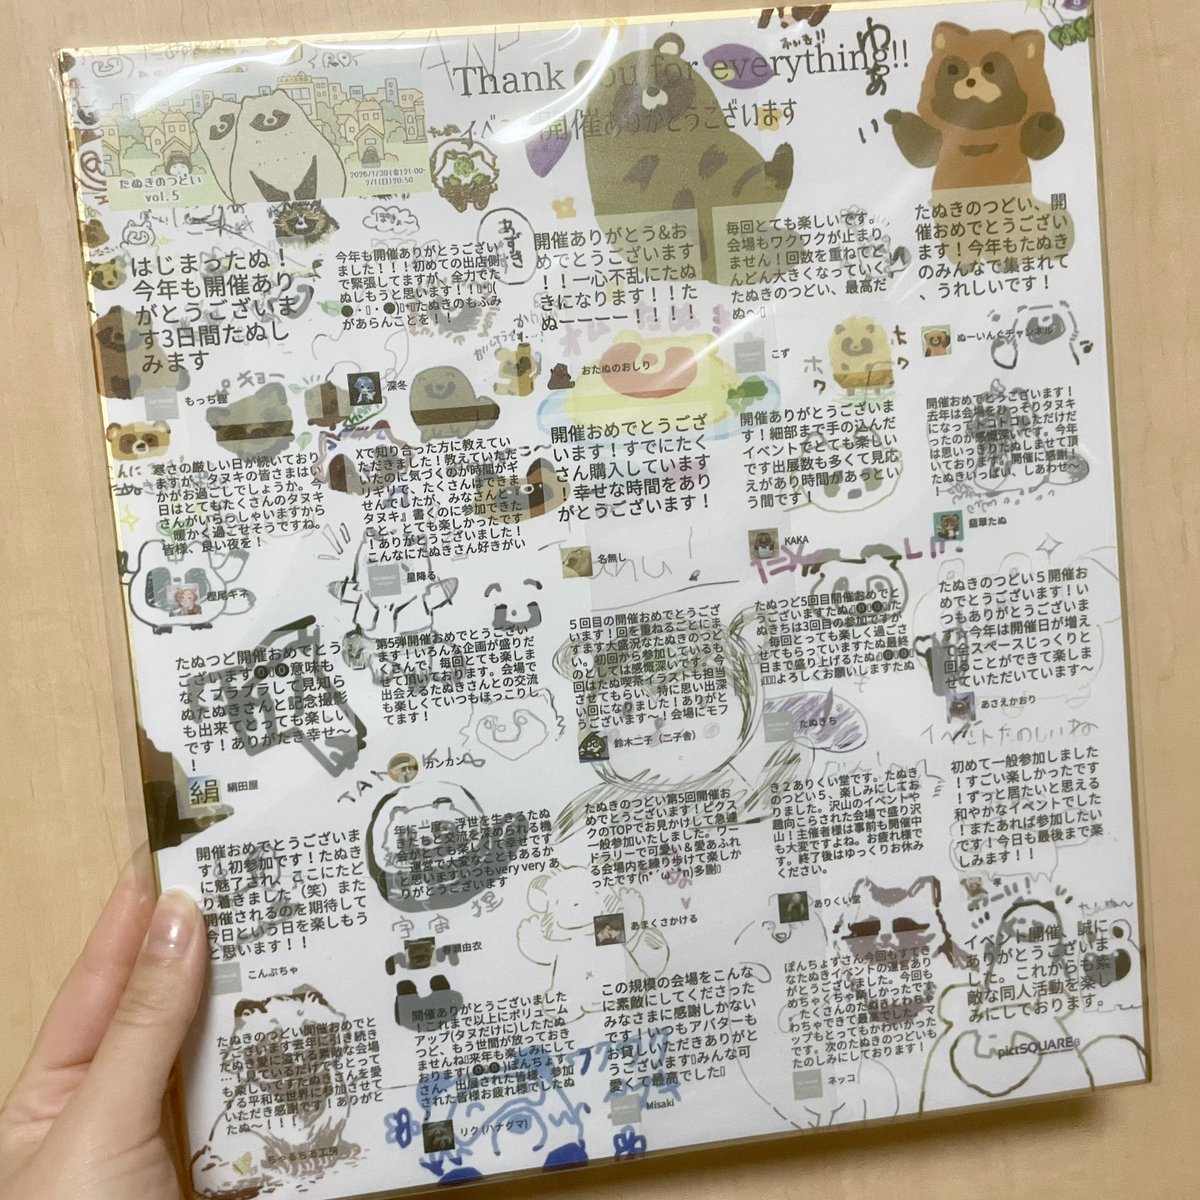 Thank you for everything!!
イベント開催ありがとうございます
たぬきのつどい
vol.5
2026/1/30(金)21:00-
2/1(日)20:50
あずき
いゆあ
はじまったぬ!
今年も開催あり
がとうございま
す3日間たぬし
みます
もっち狸
今年も開催ありがとうござい
ました!!!初めての出店側
で緊張してますが、全力でた
ぬしもうと思います!
たぬきのもふみ
があらんことを!!
深冬
開催ありがとう&お
めでとうございます
!!一心不乱にたぬ
きになります!!!た
ぬーーーー!!!!
おたぬのおしり
毎回とても楽しいです。
会場もワクワクが止まり
ません!回数を重ねてど
んどん大きくなっていく
たぬきのつどい、最高だ
ぬ〜
こず
たぬきのつどい、開
催おめでとうござい
ます!今年もたぬき
のみんなで集まれて
、うれしいです!
ぬーいんぐチャンネル
寒さの厳しい日が続いており
ますが、タヌキの皆さまはい
かがお過ごしでしょうか。今
日はとてもたくさんのタヌキ
さんがいらっしゃいますから
、暖かく過ごせそうですね。
皆様、良い夜を!
樫尾キネ
Xで知り合った方に教えてい
ただきました!教えていただ
いたのに気づくのが時間がギ
リギリで、たくさんはできま
せんでしたが、みなさんと『
タヌキ』書くのに参加できた
こと、とても楽しかったです
!ありがとうございました!
こんなにたぬきさん好きがい
星降る
開催おめでとうござ
います!すでにたく
さん購入しています
!幸せな時間をあり
がとうございます!
名無し
開催ありがとうございま
す!細部まで手の込んだ
イベントでとても楽しい
です出展数も多くて見応
えがありあっとい
う間です!
KAKA
開催おめでとうございます!
去年は会場をひっそりタヌキ
になってトコトコしただけだ
ったのが感慨深いです。今年
は思いっきりたぬしませて頂
いております。開催に感謝!
たぬきいっぱい、しあわせ〜
!
翡翠たぬ
たぬつど開催おめでとう
ございます意味も
なくブラブラして見知ら
ぬたぬきさんと記念撮影
も出来てとっても楽しい
です!ありがたき幸せ〜
!
絹田屋
第5弾開催おめでとうござい
ます!いろんな企画が盛りだ
くさんで、毎回とても楽しま
せて頂いております。会場で
出会えるたぬきさんとの交流
も楽しくていつもほっこりし
てます!
カンカン
5回目の開催おめでとうござ
います!回を重ねるごとにま
すます大盛況なたぬきのつど
い。初回から参加しているも
のとしては感慨深いです。今
回はたぬ喫茶イラストも担当
させてもらい、特に思い出深
い回になりました!ありがと
うございます〜!会場にモフ
鈴木二子(二子舎)
たぬつど5回目開催おめで
とうございますたぬ
たぬきちは3回目の参加ですが
、毎回とっても楽しく過ごさ
せてもらってますたぬ最終
日まで盛り上げるたぬ
よろしくお願いしますたぬ
たぬきち
たぬきのつどい5開催お
めでとうございます!い
つもありがとうございま
す☆今年は開催日が増え
て会スペースじっくりと
回ることができて楽しま
せていただいています〜
あさえかおり
イベントたのしいね
開催おめでとうございま
す!初参加です!たぬき
に魅了され、ここにたど
り着きました(笑)また
開催されるのを期待して
今日という日を楽しもう
と思います!!
こんぶちゃ
年に一度、浮世を生きるたぬ
きたちと交流を深められる機
会がとても楽しくて幸せです
!運営で大変なこともあるか
と思いますいつもvery very あ
りがとうございます
宇宙狸
たぬきのつどい第5回開催お
めでとうございます!ピクス
クのTOPでお見かけして急遽
一般参加いたしました。ワー
ドラリーで可愛い&愛あふれ
る会場内を練り歩けて楽しか
ったです(n*´ω`*n)多謝
あまくさかける
き2ありくい堂です。たぬき
のつどい5、楽しみにしてお
りました。沢山のイベントや
趣向こらされた会場で盛り沢
山!主催者様は事前も開催中
も大変ですよね。お疲れ様で
す。終了後はゆっくりお休み
ください。
ありくい堂
初めて一般参加しました
!すごい楽しかったです
!ずっと居たいと思える
和やかなイベントでした
!またあれば参加したい
です!今日も最後まで楽
しみます!!
たぬきのつどい開催おめでと
うございます去年に引き続き
…熱量に溢れる素敵な会場
を見ているだけでもとって
も楽しいですたぬきさんを愛
する平和な世界に参加させて
いただき感謝です!ありがと
たぬ〜!!!
ちゃるちあ工房
開催ありがとうございました
!これまで以上にボリューム
アップ(タヌだけに)したたぬ
つど、もう世間が放っておき
ません!来年も楽しみにして
おります。ぽんちょす
さん、出展された皆様、参加
された皆様お疲れ様でしたぬ
リク(ハナグマ)
この規模の会場をこんな
に素敵にしてくださった
みなさまに感謝しかない
です!いつもアバターも
お貸しいただきありがと
うございますみんな可
愛くて最高でした
Misaki
ぽんちょすさん、今回もすてき
なたぬきイベントの運営あり
がとうございました。今回も
めちゃくちゃ楽しかったです
。たくさんのたぬきとわちゃ
わちゃできて最高でした。マ
ップもとってもかわいかった
です。次のたぬきのつどいも
たのしみにしております!
ネッコ
イベント開催、誠に
ありがとうございま
した。これからも素
敵な同人活動を楽し
みにしております。
pictSQUARE